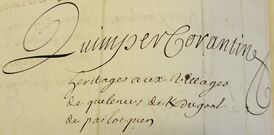 Quimper Corantin
heritages aux villages
de quelenec de Kdugoal
de